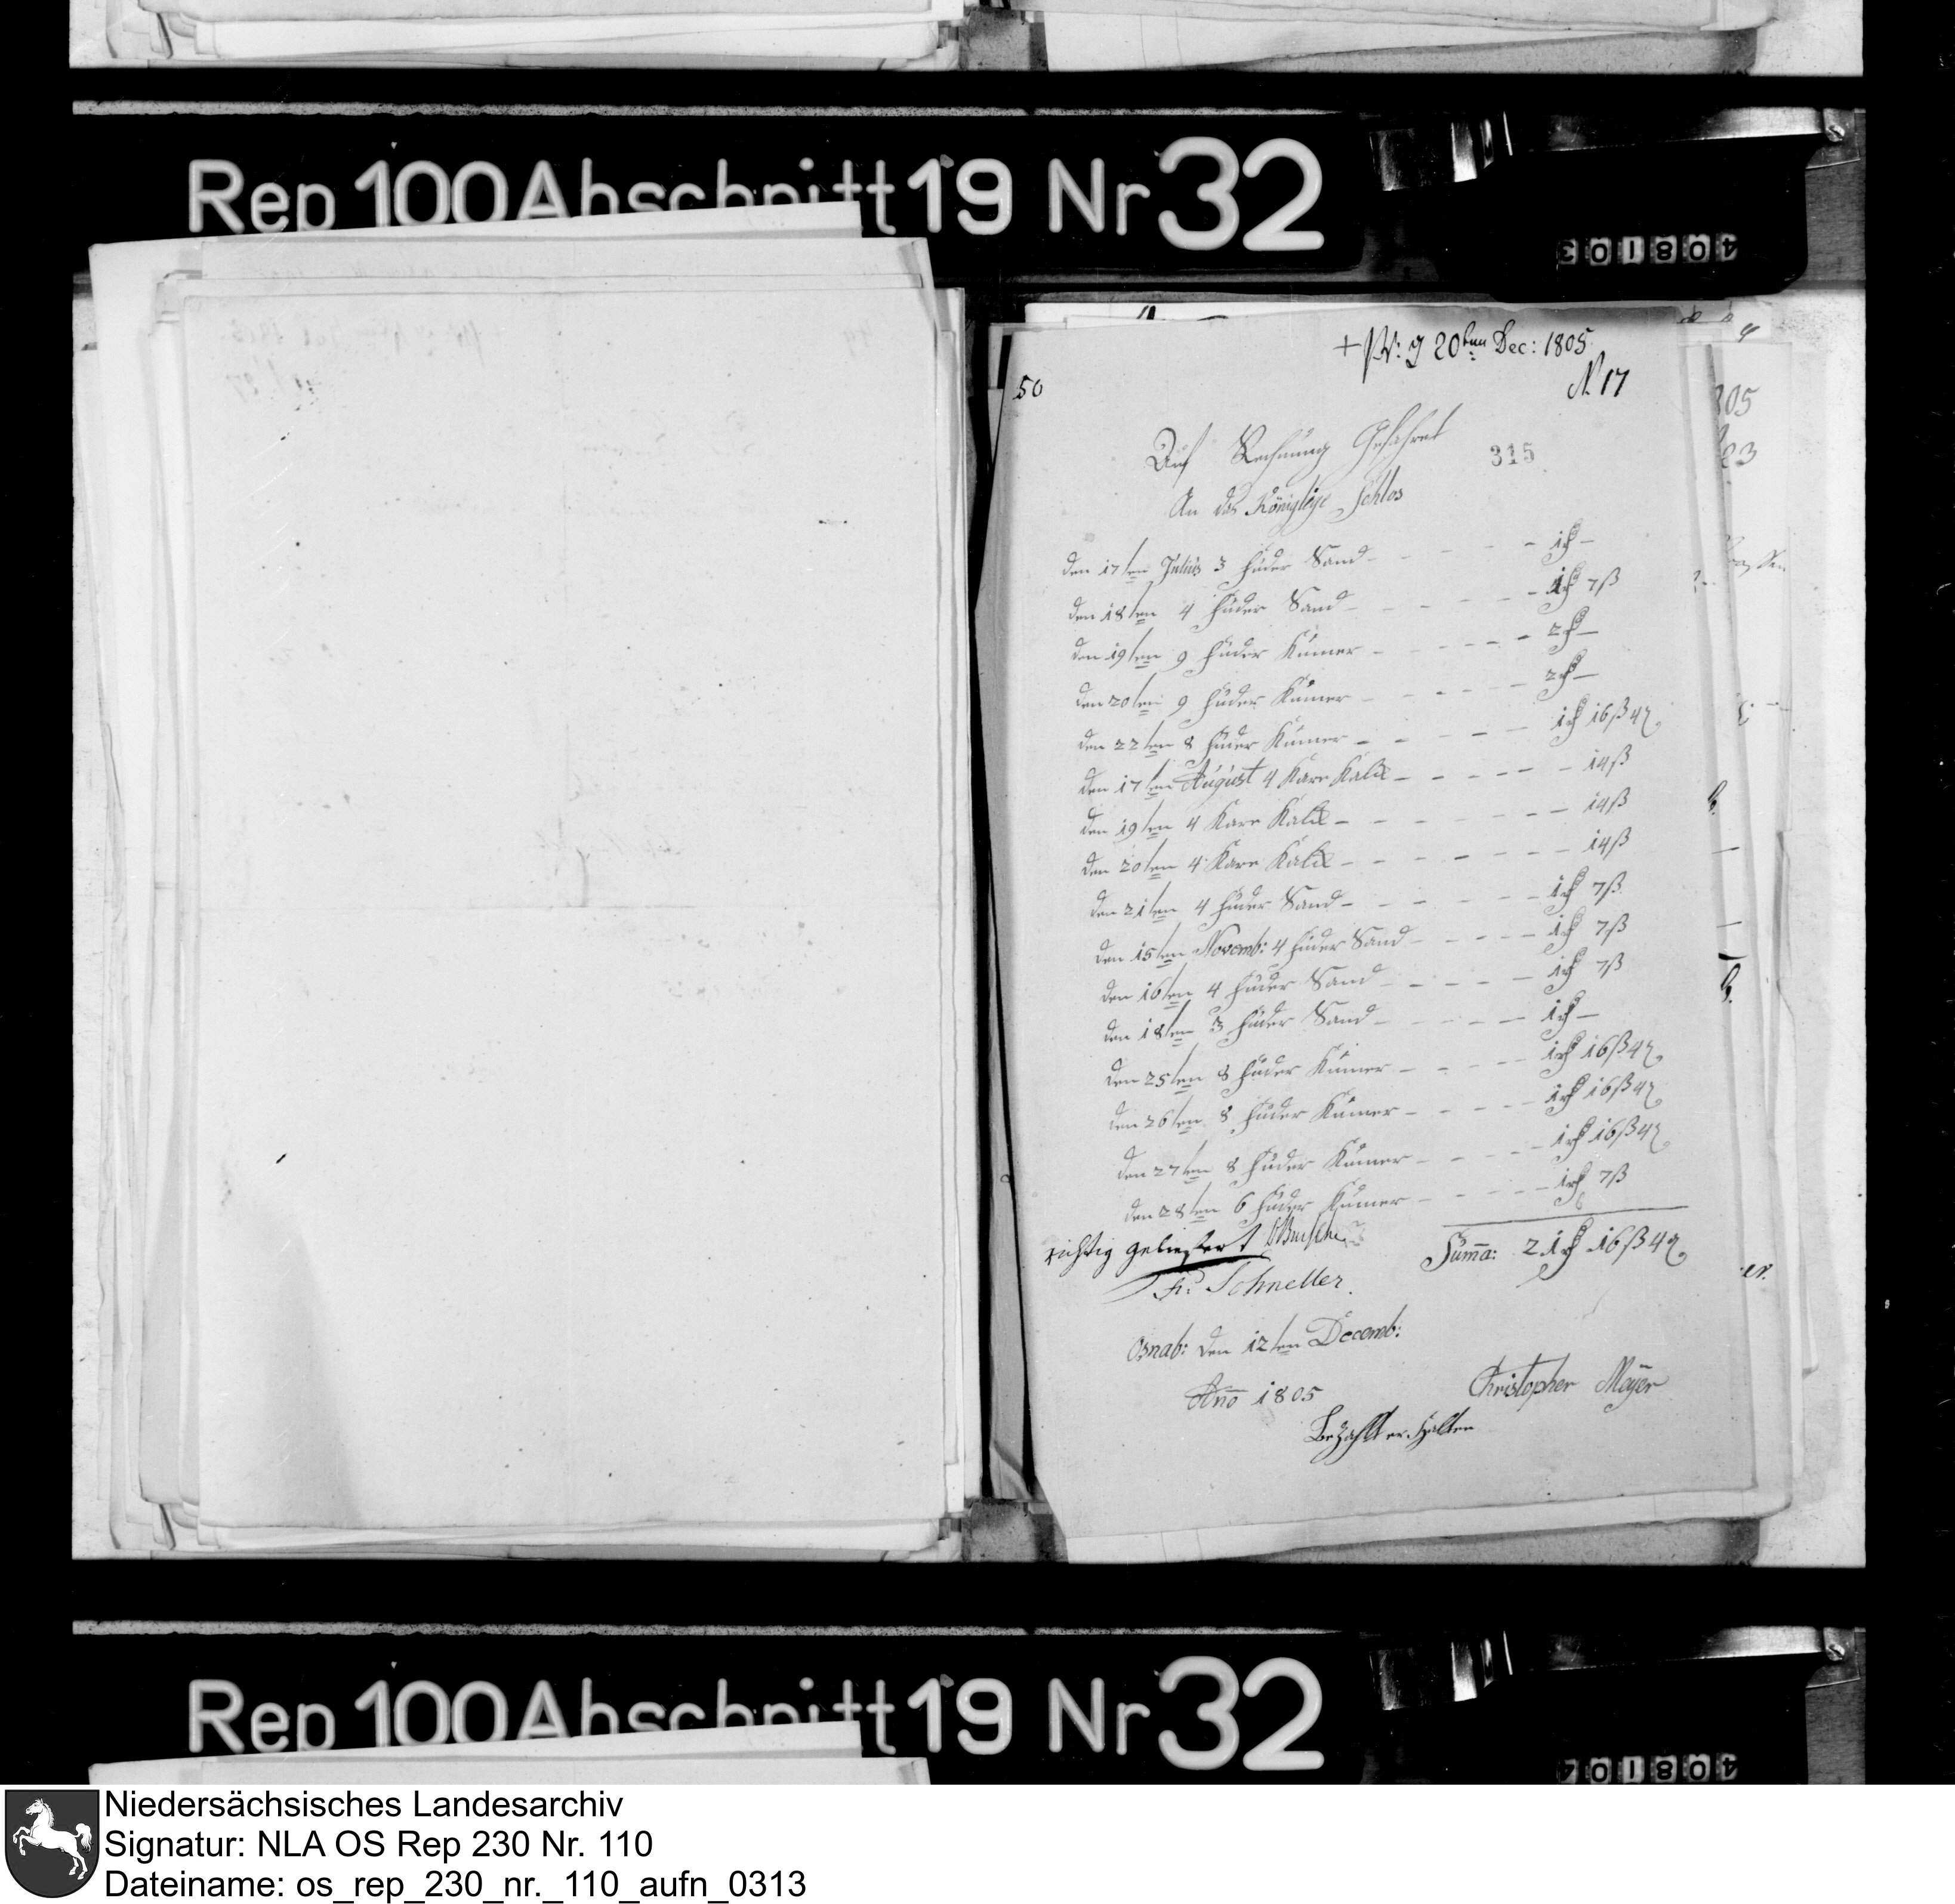 Rep 100 Abschnitt 19 Nr 32
408103
+ Pr: d 20ten Dec: 1805
N 17
50
Auf Rechnung Gefahret
315
An das Königliche Schlos
den 17ten Julius 3 fuder Sand - - - - 1 rh -
den 18ten 4 fuder Sand - - - - 1 rh 7 ß
den 19ten 9 fuder Kumer - - - - 2 rh -
den 20ten 9 fuder Kumer - - - - 2 rh -
den 22ten 8 fuder Kumer - - - - 1 rh 16 ß 4 d
den 17ten August 4 Kare Kalck - - - - 14 ß
den 19ten 4 Kare Kalck - - - - 14 ß
den 20ten 4 Kare Kalck - - - - 14 ß
den 21ten 4 fuder Sand - - - - 1 rh 7 ß
den 15ten Novemb: 4 fuder Sand - - - - 1 rh 7 ß
den 16ten 4 fuder Sand - - - - 1 rh 7 ß
den 18ten 3 fuder Sand - - - - 1 rh -
den 25ten 8 fuder Kumer - - - - 1 rh 16 ß 4 d
den 26ten 8 fuder Kumer - - - - 1 rh 16 ß 4 d
den 27ten 8 fuder Kumer - - - - 1 rh 16 ß 4 d
den 28ten 6 fuder Kumer - - - - 1 rh 7 ß
richtig geliefert
Suma: 21 rh 16 ß 4 d
Fr. Schneller.
Osnab: den 12ten Decemb:
Ano 1805
Christopher Meyer
Bezahlt erhalten
Rep 100 Abschnitt 19 Nr 32
408104
Niedersächsisches Landesarchiv
Signatur: NLA OS Rep 230 Nr. 110
Dateiname: os_rep_230_nr._110_aufn_0313